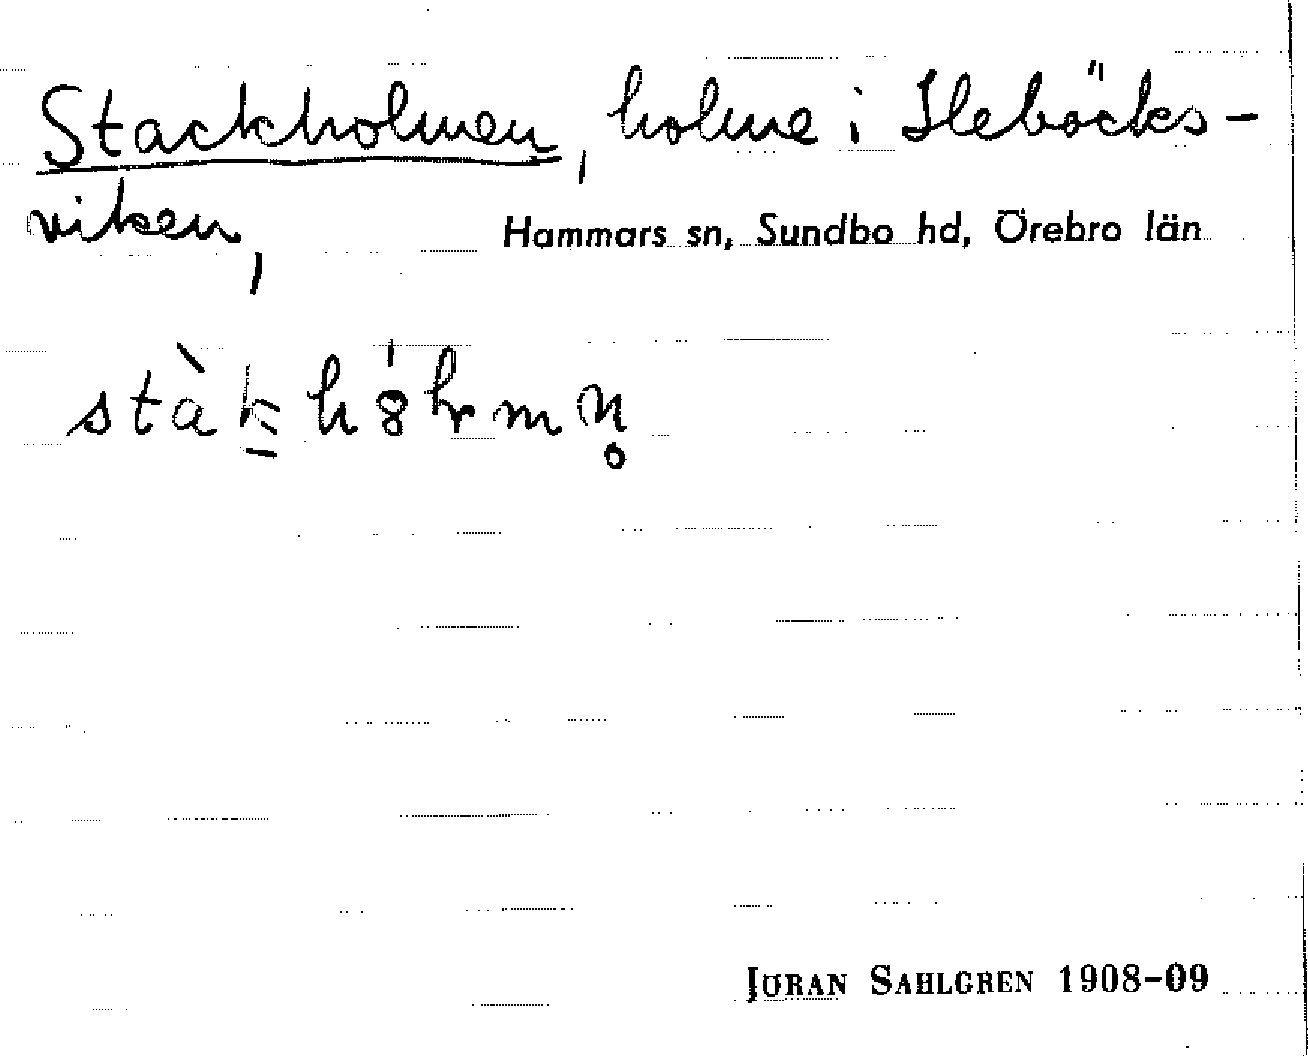 Stackholmen, holme i Ileböcks-
viken, Hammars sn, Sundbo hd, Örebro län
JÖRAN SAHLGREN 1908-09